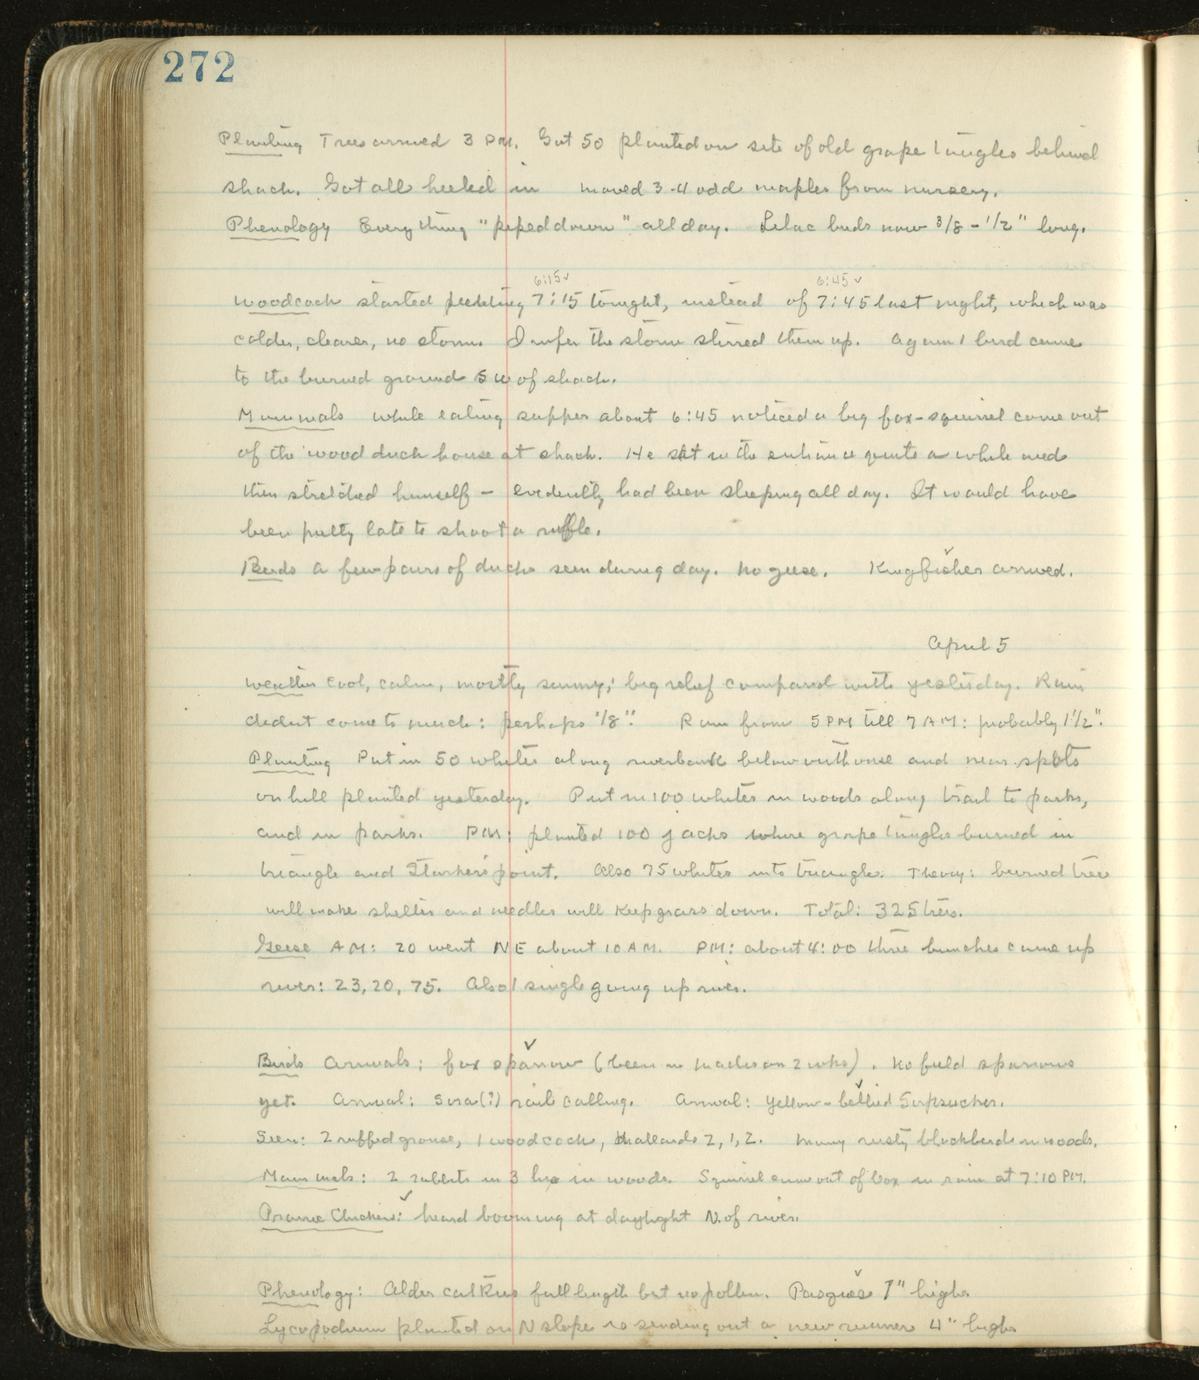 272
Planting Trees arrived 3 PM. Got 50 planted on site of old grape tangles behind
shack. Got all heeled in moved 3-4 odd maples from nursery.
Phenology Everything "piped down" all day. Lilac buds now 3/8 - 1/2" long.
6:15✓ 6:45✓
Woodcock started peenting 7:15 tonight, instead of 7:45 last night, which was
colder, clearer, no storm. I infer the storm stirred them up. Again 1 bird came
to the burned ground SW of shack.
Mammals While eating supper about 6:45 noticed a big fox-squirrel come out
of the wood duck house at shack. He sat in the entrance quite a while and
then stretched himself - evidently had been sleeping all day. It would have
been pretty late to shoot a
Birds a few pairs of ducks seen during day. No geese. Kingfisher arrived.
April 5
Weather Cool, calm, mostly sunny; big relief compared with yesterday. Rain
didnt come to much: perhaps 1/8". Rain from 5 PM till 7 AM: probably 1 1/2".
Planting Put in 50 whites along riverbank below outhouse and near spots
on hill planted yesterday. Put in 100 whites in woods along trail to parks,
and in parks. PM: planted 100 jacks where grape tangles burned in
triangle and Starker's point. Also 75 whites into triangle. Theory: burned trees
will make shelter and needles will keep grass down. Total: 325 trees.
Geese AM: 20 went NE about 10 AM. PM: about 4:00 three bunches came up
river: 23, 20, 75. Also 1 single going up river.
Birds Arrivals: fox sparrow (been in Madison 2 wks). No field sparrows
yet. Arrival: Sora(?) rail calling. Arrival: Yellow-bellied Sapsucker.
Seen: 2 ruffed grouse, 1 woodcock, Mallards 2, 1, 2. Many rusty blackbirds in woods.
Mammals: 2 rabbits in 3 hrs in woods. Squirrel came out of box in rain at 7:10 PM.
Prairie Chicken: heard booming at daylight N. of river.
Phenology: Alder catkins full length but no pollen. Pasques 1" high.
Lycopodium planted on N slope is sending out a new runner 4" high